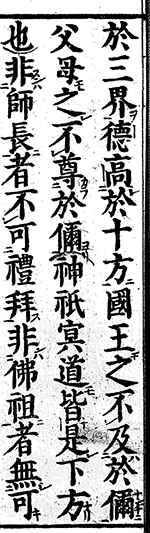 於三界德高於十方國王之不及於儞
父母之不尊於儞神祇㝠道皆是下方
也非師長者不可禮拜非佛祖者無可